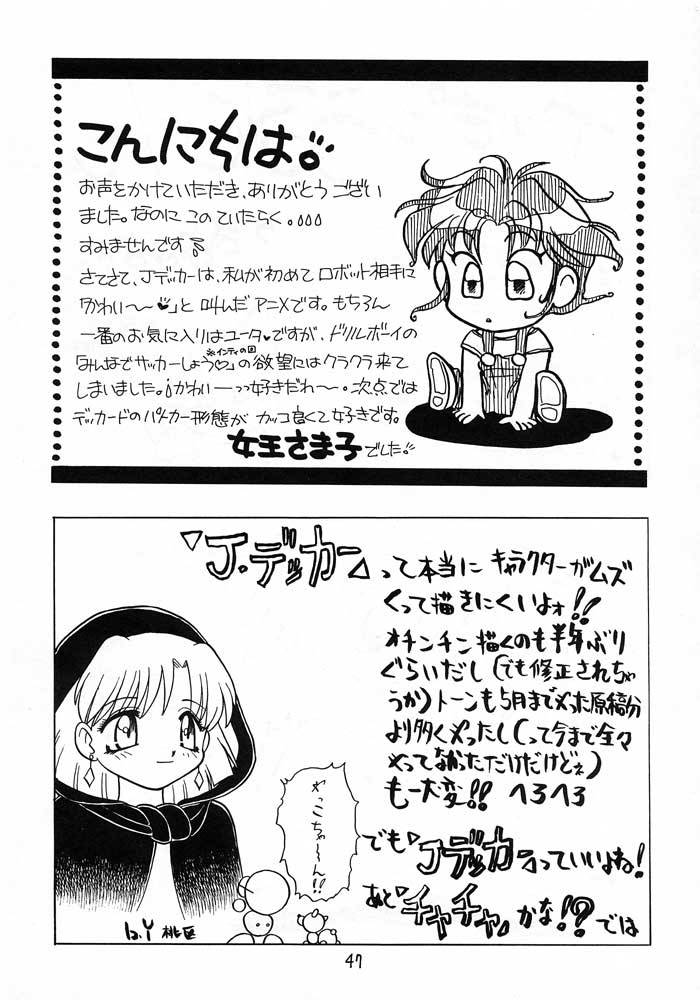 こんにちは。
お声をかけていただき、ありがとう ござい
ました。なのに この ていたらく。。。。
すみませんです
さてさて、Jデッカーは、私が初めて ロボット相手に
「かわい〜〜♥」と 叫んだ アニメです。もちろん
一番のお気に入りはユータ♥ですが、ドリルボーイの
「みんなでサッカーしよう♡」の欲望にはクラクラ来て
しまいました。かわいーっっ好きだわ〜。次点では
デッカードのパトカー形態が カッコ良くて好きです。
女王さま子でした。
「J.デッカー」って本当に キャラクターがムズ
くって描きにくいよォ!!
オチンチン描くのも半年ぶり
ぐらいだし(でも修正されちゃ
うか)トーンも5月までやった原稿分
より多くやったし(って今まで全々
やってなかっただけだけどネ)
もー大変!! ヘろヘろ
でも「Jデッカー」っていいよね!
あと「チャチャ」かな!? では
やっこちゃ〜ん!!
b.Y 桃
47